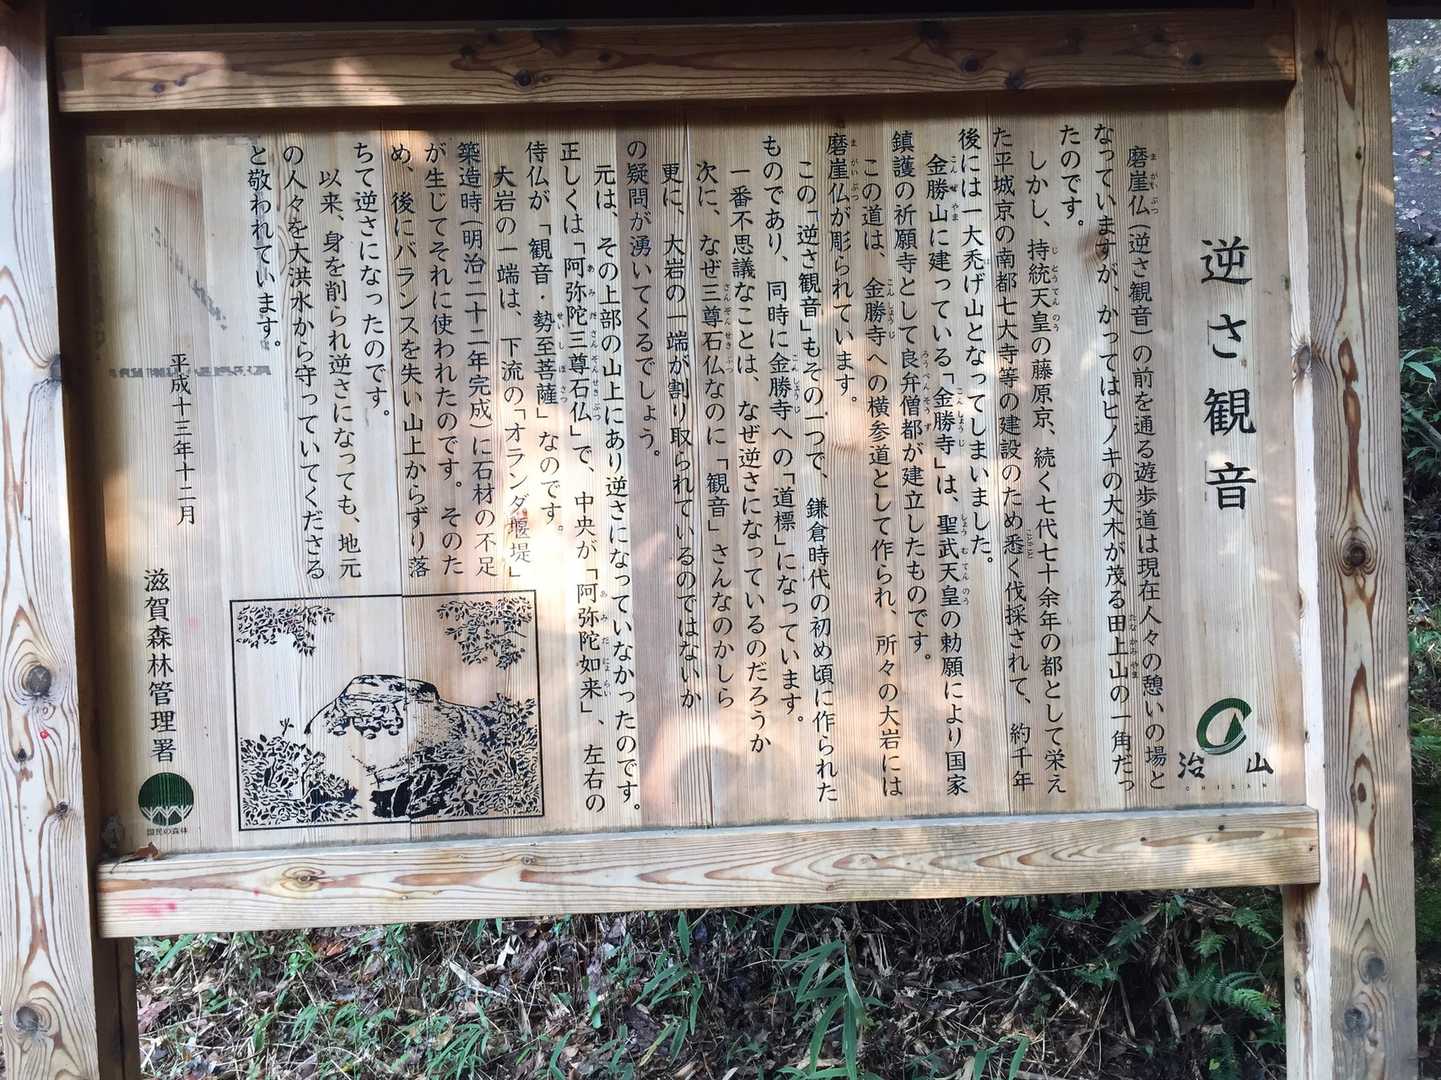 逆さ観音
磨崖仏(逆さ観音)の前を通る遊歩道は現在人々の憩いの場と
なっていますが、かってはヒノキの大木が茂る田上山の一角だっ
たのです。
しかし、持統天皇の藤原京、続く七代七十余年の都として栄え
た平城京の南都七大寺等の建設のため悉く伐採されて、約千年
後には一大禿げ山となってしまいました。
金勝山に建っている「金勝寺」は、聖武天皇の勅願により国家
鎮護の祈願寺として良弁僧都が建立したものです。
この道は、金勝寺への横参道として作られ、所々の大岩には
磨崖仏が彫られています。
この「逆さ観音」もその一つで、鎌倉時代の初め頃に作られた
ものであり、同時に金勝寺への「道標」になっています。
一番不思議なことは、なぜ逆さになっているのだろうか
次に、なぜ三尊石仏なのに「観音」さんなのかしら
更に、大岩の一端が割り取られているのではないか
の疑問が湧いてくるでしょう。
元は、その上部の山上にあり逆さになっていなかったのです。
正しくは「阿弥陀三尊石仏」で、中央が「阿弥陀如来」、左右の
侍仏が「観音・勢至菩薩」なのです。
大岩の一端は、下流の「オランダ堰堤」
築造時(明治二十二年完成)に石材の不足
が生じてそれに使われたのです。そのた
め、後にバランスを失い山上からずり落
ちて逆さになったのです。
以来、身を削られ逆さになっても、地元
の人々を大洪水から守っていてくださる
と敬われています。
平成十三年十二月
滋賀森林管理署
国民の森林
治山
CHISAN